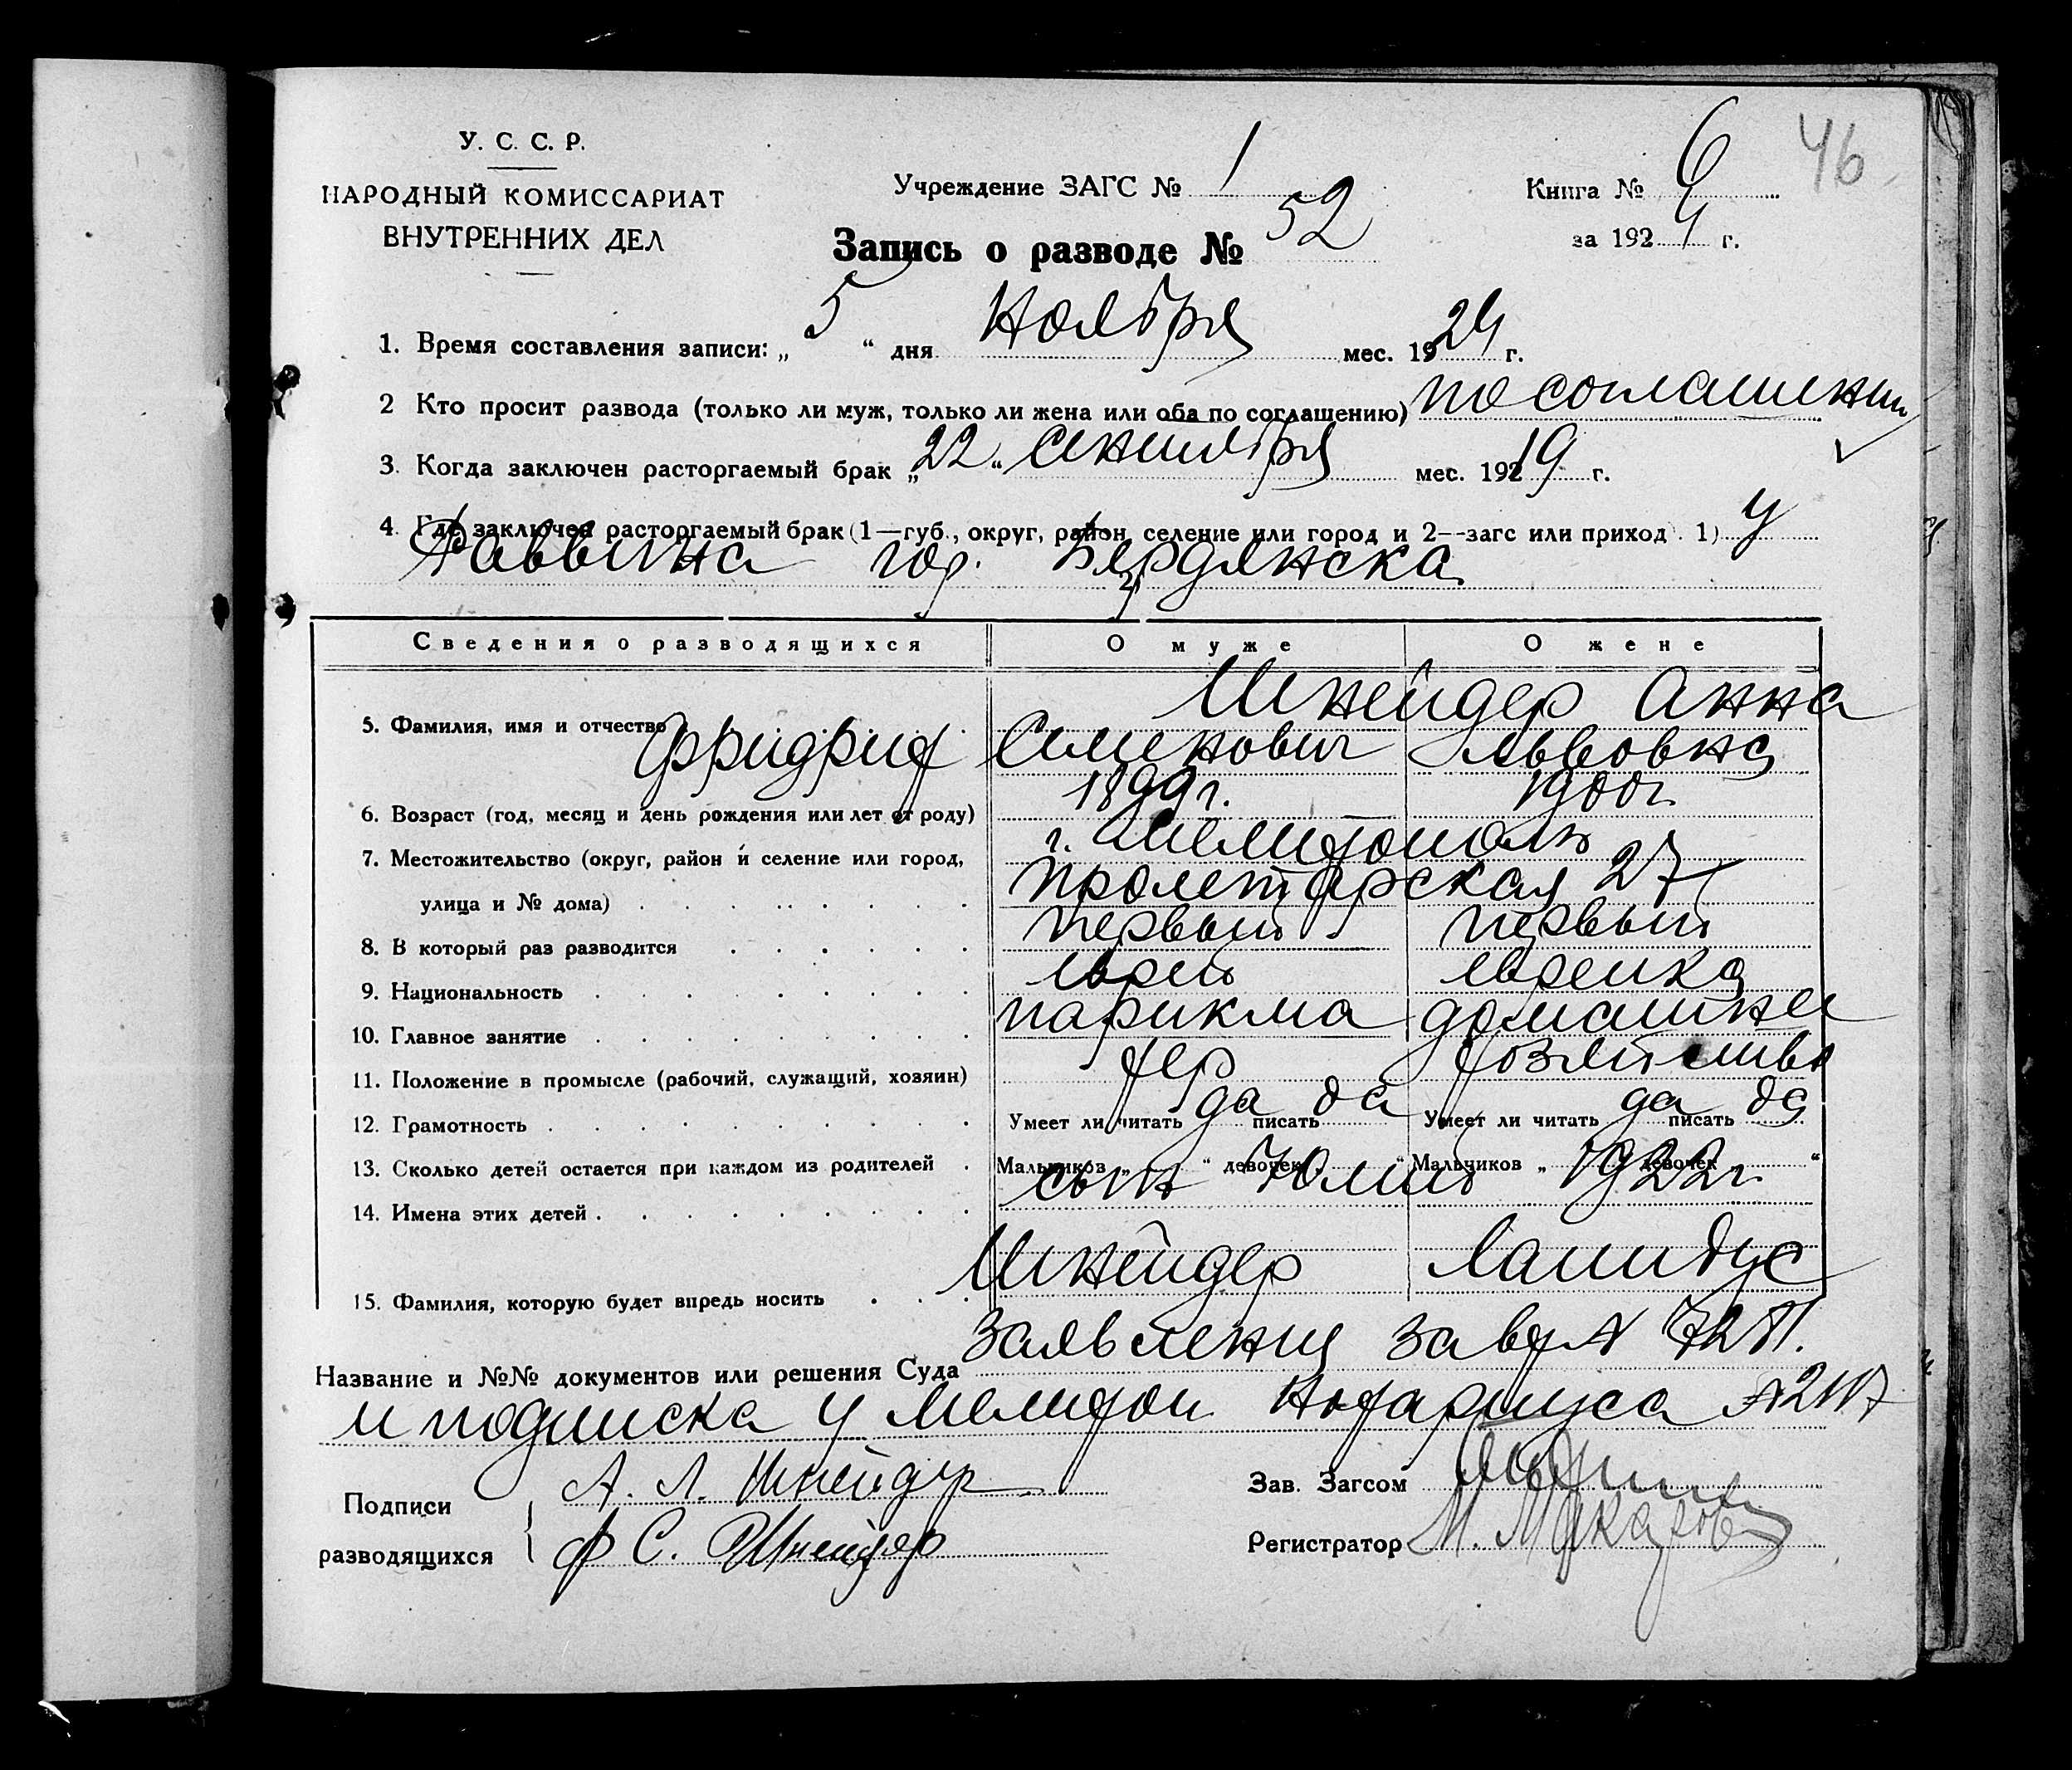 46
У. С. С. Р.
НАРОДНЫЙ КОМИССАРИАТ
ВНУТРЕННИХ ДЕЛ
Учреждение ЗАГС № 1
Книга № 6
за 1924 г.
Запись о разводе № 52
1. Время составления записи: „ 5 “ дня Ноября мес. 1924 г.
2 Кто просит развода (только ли муж, только ли жена или оба по соглашению) по соглашению
3. Когда заключен расторгаемый брак „ 22 “ Сентября мес. 19219 г.
4. Где заключен расторгаемый брак (1—губ., округ, район, селение или город и 2--загс или приход). 1) у
Раввина гор. Бердянска
2)
Сведения о разводящихся О муже О жене
Шнейдер Анна
5. Фамилия, имя и отчество
Фридрих Семенович Львовна
6. Возраст (год, месяц и день рождения или лет от роду) 1899 г. 1900 г.
7. Местожительство (округ, район и селение или город, г. Мелитополь
улица и № дома) Пролетарская 27
8. В который раз разводится первый первый
9. Национальность еврей еврейка
10. Главное занятие парикма домашнее
11. Положение в промысле (рабочий, служащий, хозяин) хер хозяйство
12. Грамотность Умеет ли читать да писать да Умеет ли читать да писать да
13. Сколько детей остается при каждом из родителей Мальчиков „ “ девочек „ “ Мальчиков „ “ девочек „ “
14. Имена этих детей сын Юлий 1922 г.
15. Фамилия, которую будет впредь носить Шнейдер Лапидус
Название и №№ документов или решения Суда Заявления
и подписка у Мелитоп Нотариуса
Подписи
разводящихся
А. Л. Шнейдер
Ф С. Шнейдер
Зав. Загсом
Регистратор М. Макарова